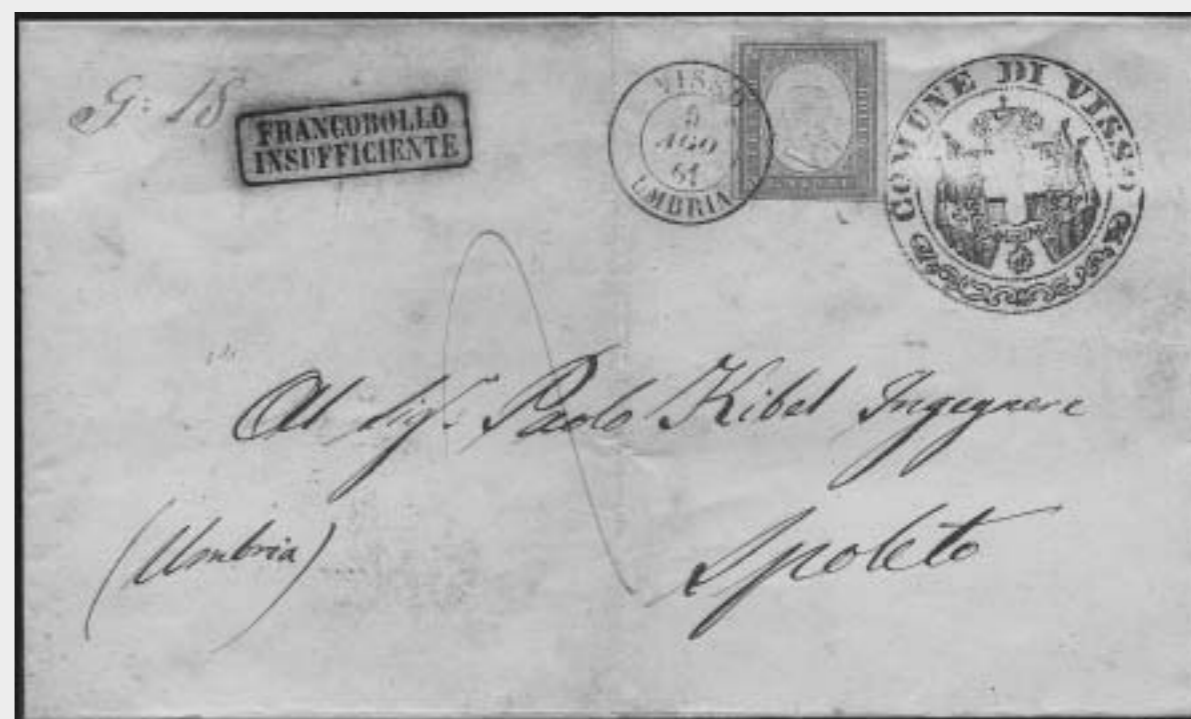 G: 18
FRANCOBOLLO
INSUFFICIENTE
VISSO
5
AGO
61
UMBRIA
COMUNE DI VISSO
Al Sigr. Paolo Kibel Ingegnere
Spoleto
(Umbria)